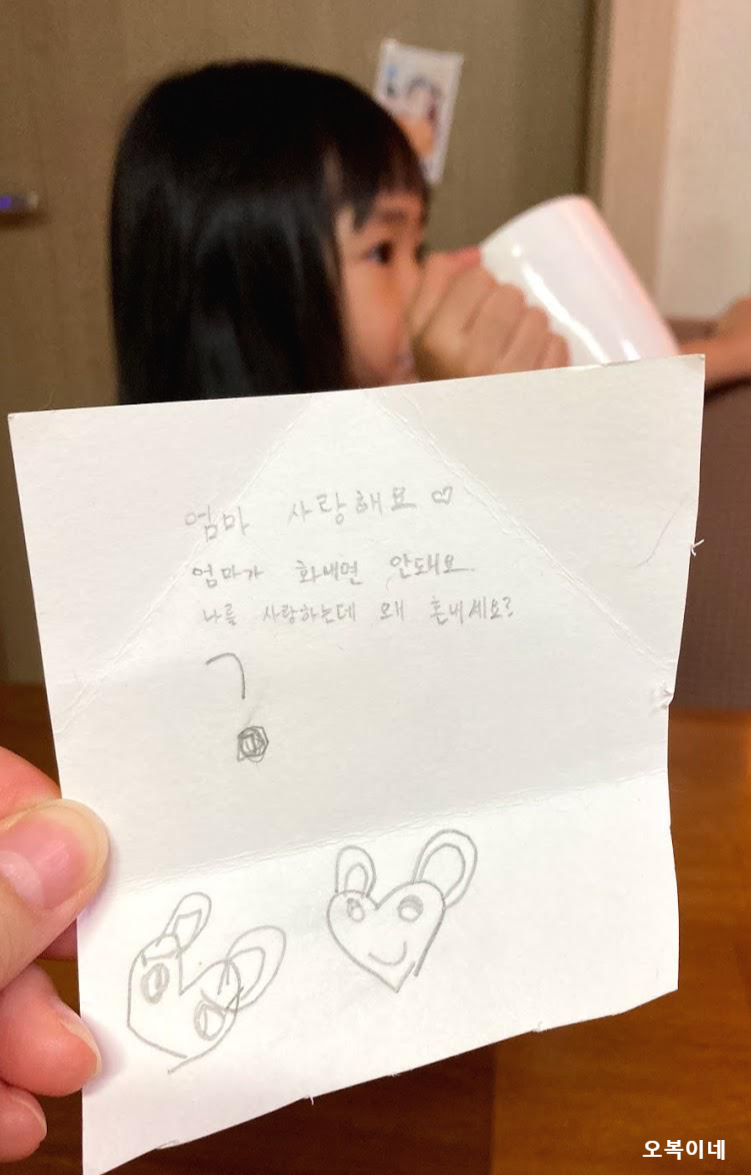 엄마 사랑해요♡
엄마가 화내면 안돼요.
나를 사랑하는데 왜 혼내세요?
오복이네